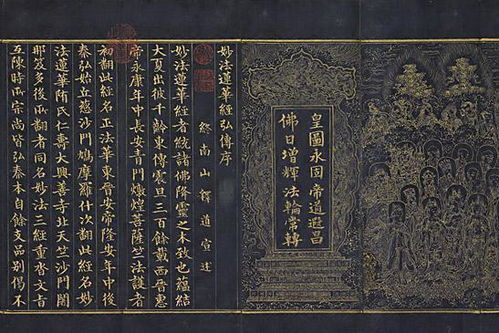 皇圖永固帝道遐昌
佛日增輝法輪常轉
妙法蓮華經弘傳序
終南山釋道宣述
妙法蓮華經者統諸佛降靈之本致也蘊結
大夏出彼千齡東傳震旦三百餘載西晉惠
帝永康年中長安青門燉煌菩薩竺法護者
初翻此經名正法華東晉安帝隆安年中後
秦弘始龜茲沙門鳩摩羅什次翻此經名妙
法蓮華隋氏仁壽大興善寺北天竺沙門闍
那笈多後所翻者同名妙法三經重沓文旨
互陳時所宗尚皆弘秦本自餘支品別偈不